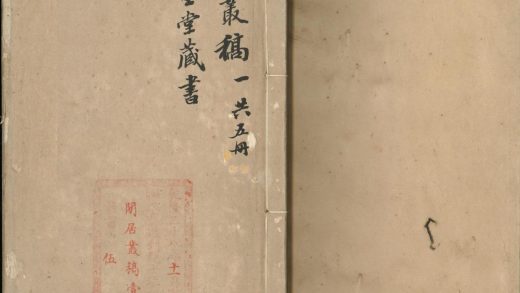 叢稿一 共五冊
堂藏書
閒居叢稿
伍